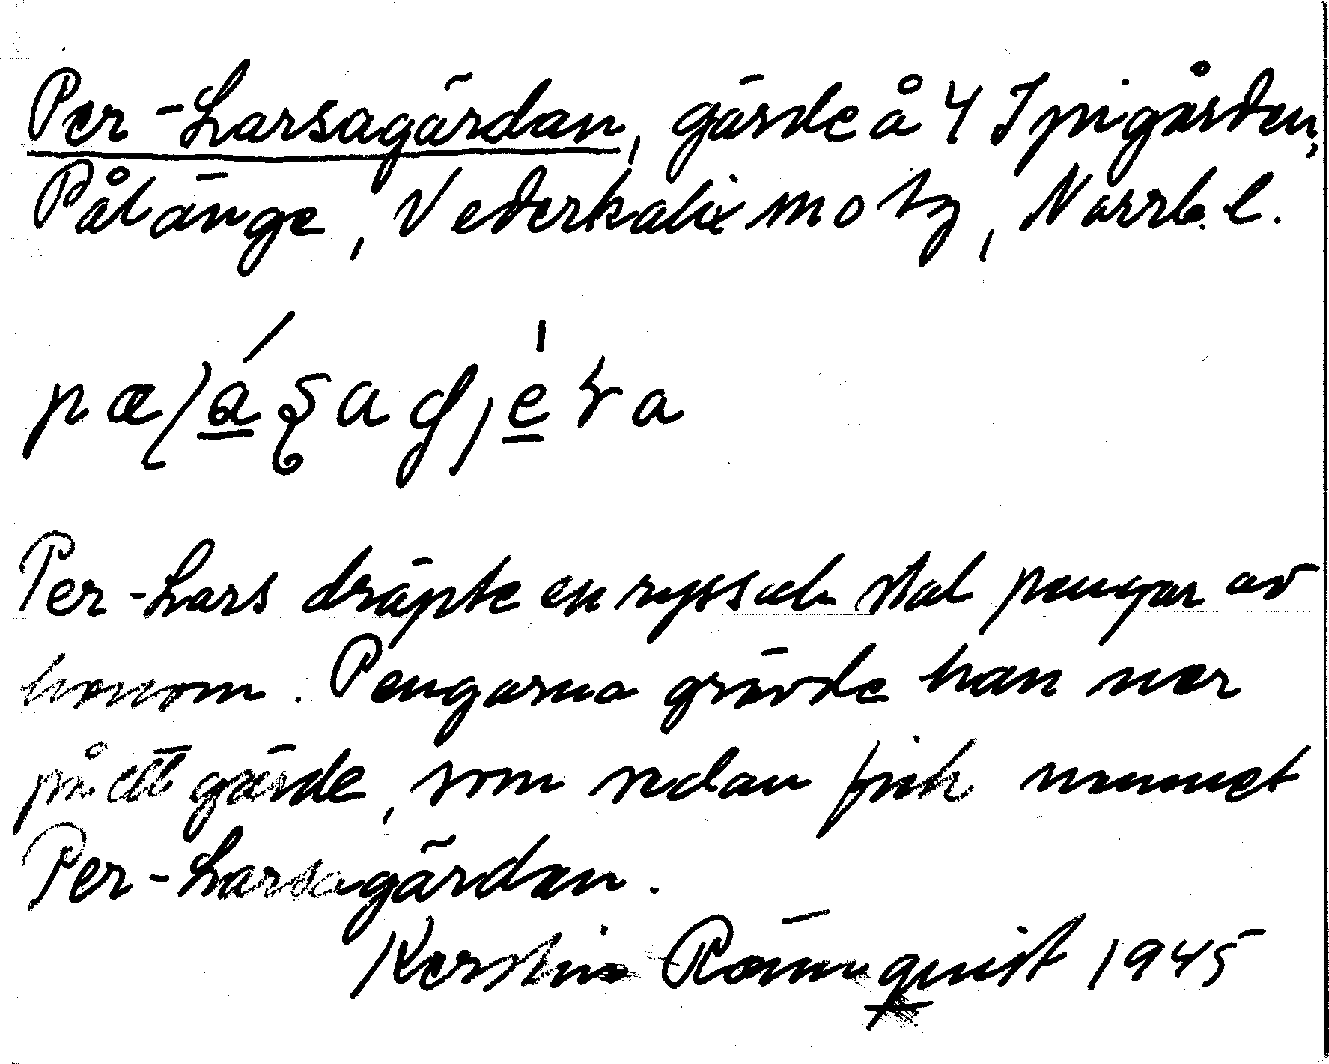 Per-Larsagärdan, gärde å 4 Ipigården,
Pålänge, Nederkalix motz, Norrb. l.
Per-Lars dräpte en ryss och stal pengar av
honom. Pengarna grävde han ner
på ett gärde, som sedan fick namnet
Per-Larsagärdan.
Kerstin Rönnquist 1945